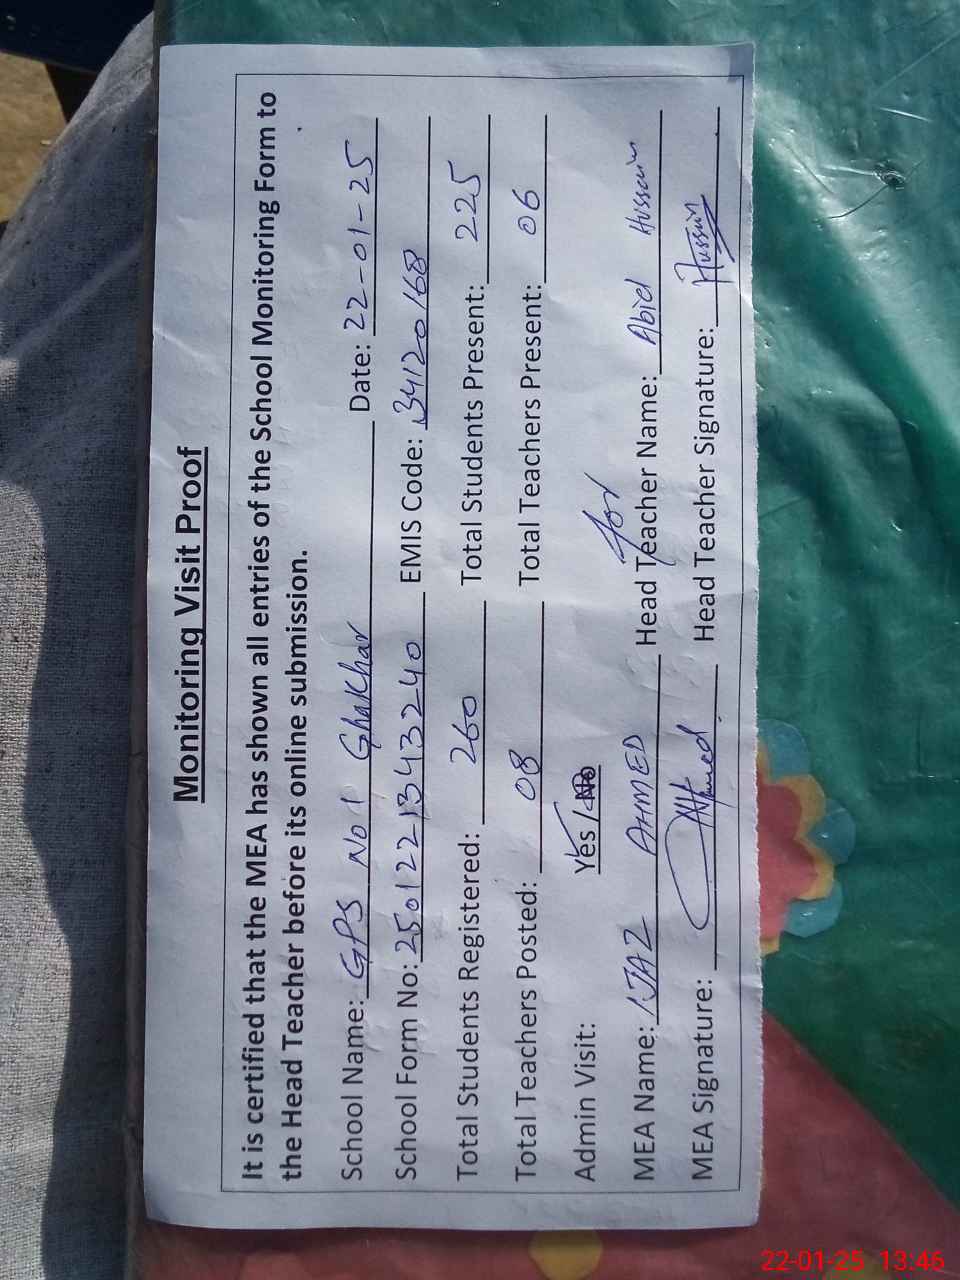 Monitoring Visit Proof
It is certified that the MEA has shown all entries of the School Monitoring Form to
the Head Teacher before its online submission.
School Name: GPS No 1 Ghakhar Date: 22-01-25
School Form No: 250122134343240 EMIS Code: 34120168
Total Students Registered: 260 Total Students Present: 225
Total Teachers Posted: 08 Total Teachers Present: 06
Admin Visit: Yes / No
for
MEA Name: IJAZ AHMED Head Teacher Name: Abid Hussain
MEA Signature: Ahmed Head Teacher Signature: Hussain
22-01-25 13:46